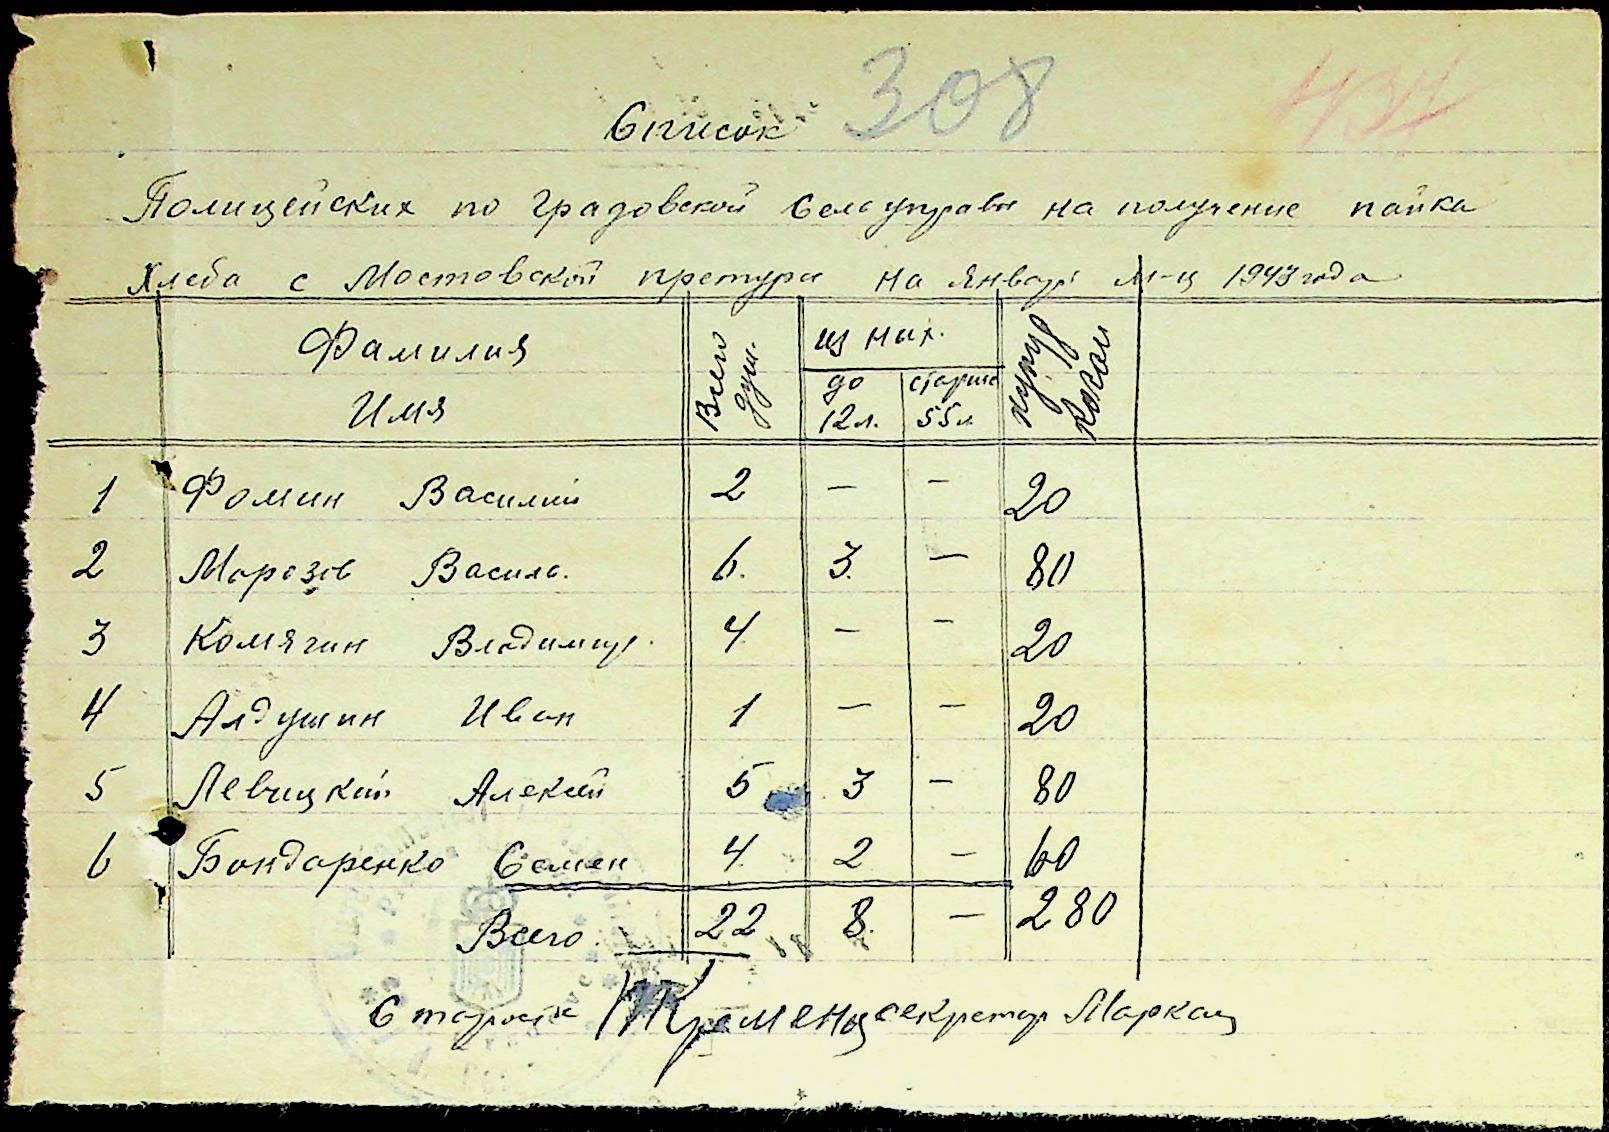 308
Список
Полицейских по Градовской Сельуправы на получение пайка
Хлеба с Мостовской претуры на Январь м-ц 1943 года
Фамилия Имя
Всего душ.
из них.
до 12 л.
старше 55 л.
1 Фомин Василий 2 — — 20
2 Морозов Василь. 6. 3. — 80
3 Комягин Владимир. 4 — — 20
4 Алдушин Иван 1 — — 20
5 Левицкий Алексей 5 3 — 80
6 Бондаренко Семен 4. 2 — 60
Всего. 22 8. — 280
Староста Кременц секретар Маркац